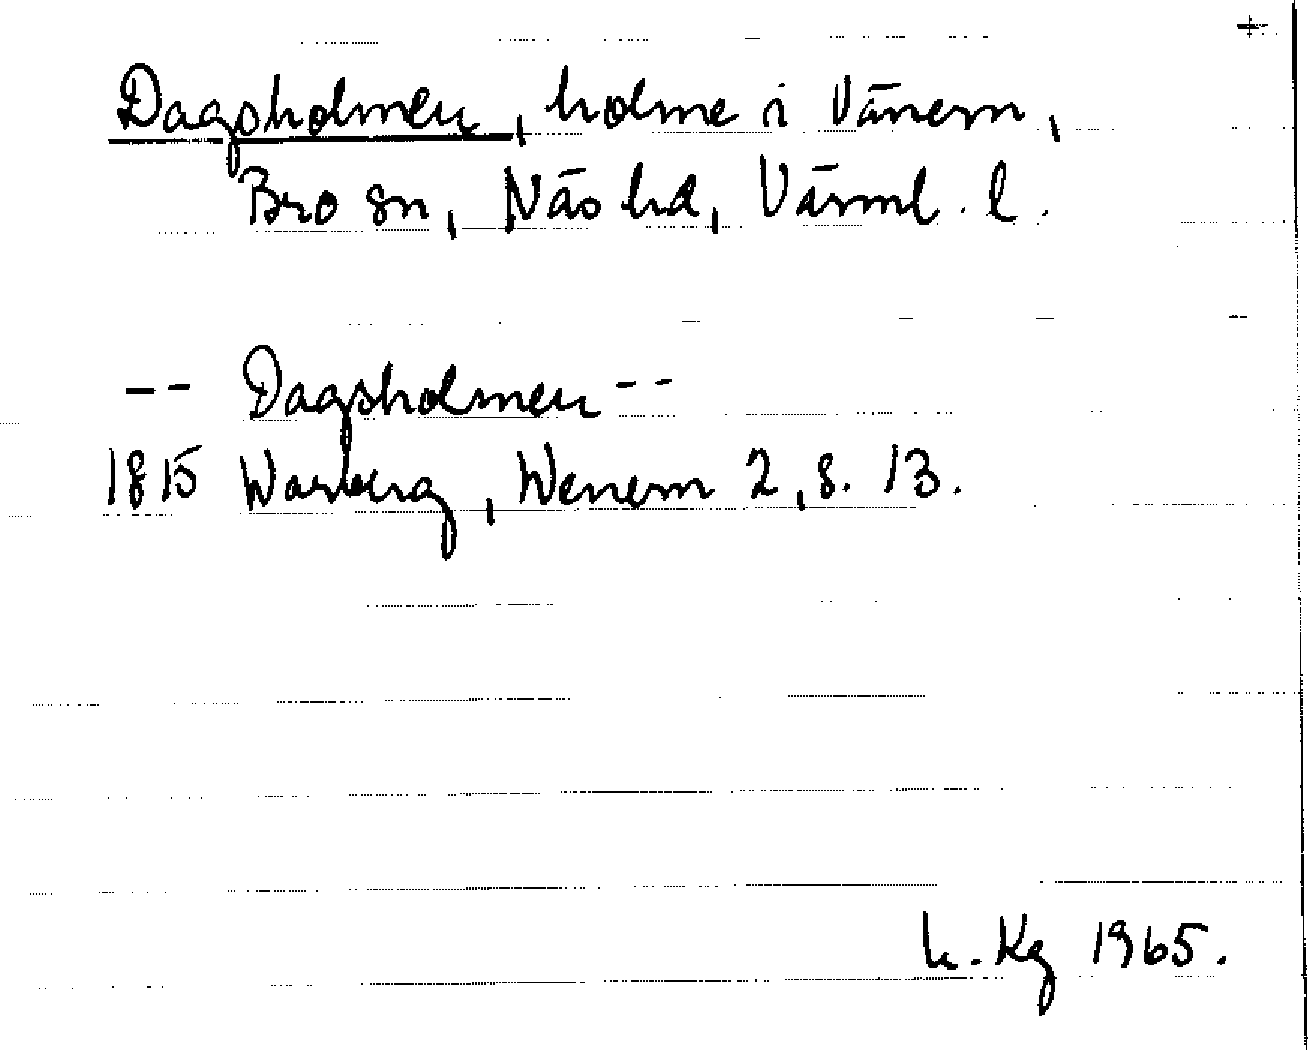 +
Dagsholmen, holme i Vänern,
Bro sn, Näs hd, Värml. l.
-- Dagsholmen --
1815 Warberg, Wenern 2, s. 13.
h. Kg 1965.